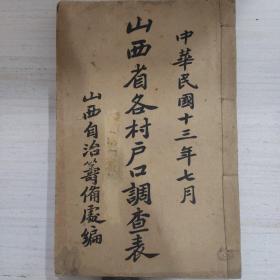 中華民國十三年七月
山西省各村戶口調查表
山西自治籌備處編